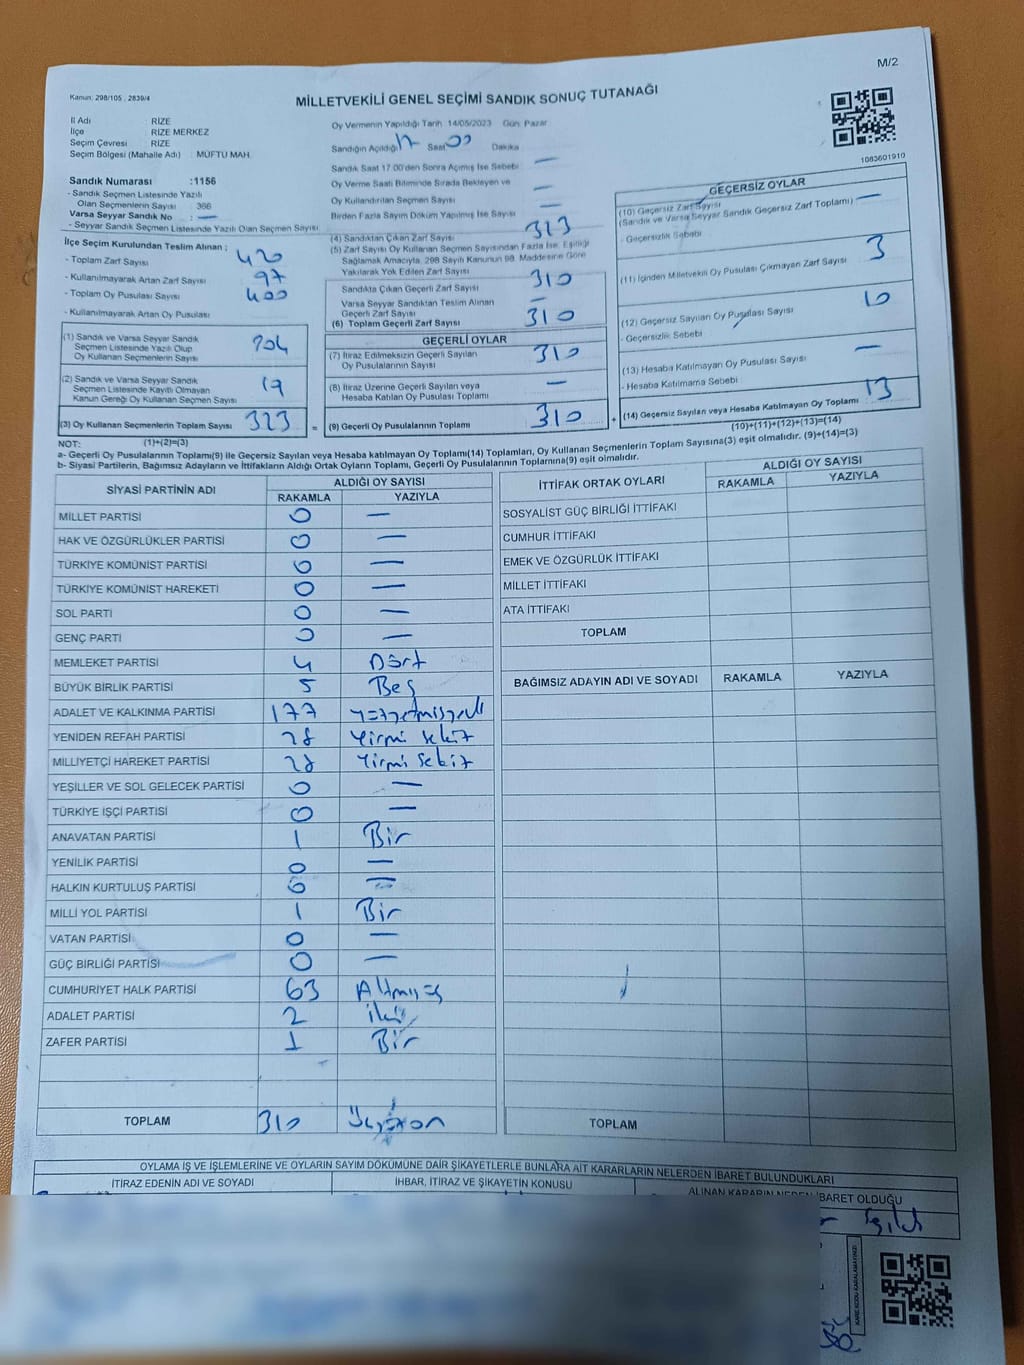 M/2
Kanun: 298/105 , 2839/4
MİLLETVEKİLİ GENEL SEÇİMİ SANDIK SONUÇ TUTANAĞI
İl Adı : RİZE
İlçe : RİZE MERKEZ
Seçim Çevresi : RİZE
Seçim Bölgesi (Mahalle Adı) : MÜFTÜ MAH.
Sandık Numarası :1156
- Sandık Seçmen Listesinde Yazılı
Olan Seçmenlerin Sayısı : 366
Varsa Seyyar Sandık No : —
- Seyyar Sandık Seçmen Listesinde Yazılı Olan Seçmen Sayısı
Oy Vermenin Yapıldığı Tarih 14/05/2023 Gün: Pazar
Sandığın Açıldığı 17 Saat 00 Dakika
Sandık Saat 17.00'den Sonra Açılmış İse Sebebi —
Oy Verme Saati Bitiminde Sırada Bekleyen ve
Oy Kullandırılan Seçmen Sayısı —
Birden Fazla Sayım Döküm Yapılmış İse Sayısı —
1083601910
İlçe Seçim Kurulundan Teslim Alınan :
- Toplam Zarf Sayısı 420
- Kullanılmayarak Artan Zarf Sayısı 97
- Toplam Oy Pusulası Sayısı 400
- Kullanılmayarak Artan Oy Pusulası
(1) Sandık ve Varsa Seyyar Sandık
Seçmen Listesinde Yazılı Olup
Oy Kullanan Seçmenlerin Sayısı
(2) Sandık ve Varsa Seyyar Sandık
Seçmen Listesinde Kayıtlı Olmayan
Kanun Gereği Oy Kullanan Seçmen Sayısı 19
(3) Oy Kullanan Seçmenlerin Toplam Sayısı 323 =
(1)+(2)=(3)
(4) Sandıktan Çıkan Zarf Sayısı 313
(5) Zarf Sayısı Oy Kullanan Seçmen Sayısından Fazla İse, Eşitliği
Sağlamak Amacıyla, 298 Sayılı Kanunun 98. Maddesine Göre
Yakılarak Yok Edilen Zarf Sayısı
Sandıkta Çıkan Geçerli Zarf Sayısı 310
Varsa Seyyar Sandıktan Teslim Alınan
Geçerli Zarf Sayısı —
(6) Toplam Geçerli Zarf Sayısı 310
GEÇERLİ OYLAR
(7) İtiraz Edilmeksizin Geçerli Sayılan
Oy Pusulasının Sayısı 310
(8) İtiraz Üzerine Geçerli Sayılan veya
Hesaba Katılan Oy Pusulası Toplamı —
(9) Geçerli Oy Pusulalarının Toplamı 310 +
GEÇERSİZ OYLAR
(10) Geçersiz Zarf Sayısı
(Sandık ve Varsa Seyyar Sandık Geçersiz Zarf Toplamı) —
- Geçersizlik Sebebi
(11) İçinden Milletvekili Oy Pusulası Çıkmayan Zarf Sayısı 3
(12) Geçersiz Sayılan Oy Pusulası Sayısı 10
- Geçersizlik Sebebi
(13) Hesaba Katılmayan Oy Pusulası Sayısı —
- Hesaba Katılmama Sebebi
(14) Geçersiz Sayılan veya Hesaba Katılmayan Oy Toplamı 13
(10)+(11)+(12)+(13)=(14)
NOT:
a- Geçerli Oy Pusulalarının Toplamı(9) ile Geçersiz Sayılan veya Hesaba katılmayan Oy Toplamı(14) Toplamları, Oy Kullanan Seçmenlerin Toplam Sayısına(3) eşit olmalıdır. (9)+(14)=(3)
b- Siyasi Partilerin, Bağımsız Adayların ve İttifakların Aldığı Ortak Oyların Toplamı, Geçerli Oy Pusulalarının Toplamına(9) eşit olmalıdır.
SİYASİ PARTİNİN ADI ALDIĞI OY SAYISI
RAKAMLA YAZIYLA
MİLLET PARTİSİ 0 —
HAK VE ÖZGÜRLÜKLER PARTİSİ 0 —
TÜRKİYE KOMÜNİST PARTİSİ 0 —
TÜRKİYE KOMÜNİST HAREKETİ 0 —
SOL PARTİ 0 —
GENÇ PARTİ 0 —
MEMLEKET PARTİSİ 4 Dört
BÜYÜK BİRLİK PARTİSİ 5 Beş
ADALET VE KALKINMA PARTİSİ 177
YENİDEN REFAH PARTİSİ 28 Yirmi sekiz
MİLLİYETÇİ HAREKET PARTİSİ 28 Yirmi sekiz
YEŞİLLER VE SOL GELECEK PARTİSİ 0 —
TÜRKİYE İŞÇİ PARTİSİ 0 —
ANAVATAN PARTİSİ 1 Bir
YENİLİK PARTİSİ 0 —
HALKIN KURTULUŞ PARTİSİ 0 —
MİLLİ YOL PARTİSİ 1 Bir
VATAN PARTİSİ 0 —
GÜÇ BİRLİĞİ PARTİSİ 0 —
CUMHURİYET HALK PARTİSİ 63
ADALET PARTİSİ 2 iki
ZAFER PARTİSİ 1 Bir
TOPLAM 310 Üçyüzon
İTTİFAK ORTAK OYLARI ALDIĞI OY SAYISI
RAKAMLA YAZIYLA
SOSYALİST GÜÇ BİRLİĞİ İTTİFAKI
CUMHUR İTTİFAKI
EMEK VE ÖZGÜRLÜK İTTİFAKI
MİLLET İTTİFAKI
ATA İTTİFAKI
TOPLAM
BAĞIMSIZ ADAYIN ADI VE SOYADI RAKAMLA YAZIYLA
TOPLAM
OYLAMA İŞ VE İŞLEMLERİNE VE OYLARIN SAYIM DÖKÜMÜNE DAİR ŞİKAYETLERLE BUNLARA AİT KARARLARIN NELERDEN İBARET BULUNDUKLARI
İTİRAZ EDENİN ADI VE SOYADI İHBAR, İTİRAZ VE ŞİKAYETİN KONUSU ALINAN KARARIN NEDEN İBARET OLDUĞU
KARE KODU KARALAMAYINIZ!